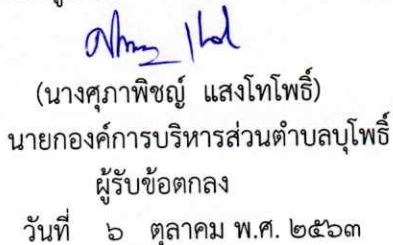 (นางศุภาพิชญ์ แสงโทโพธิ์)
นายกองค์การบริหารส่วนตำบลบุโพธิ์
ผู้รับข้อตกลง
วันที่ ๖ ตุลาคม พ.ศ. ๒๕๖๓